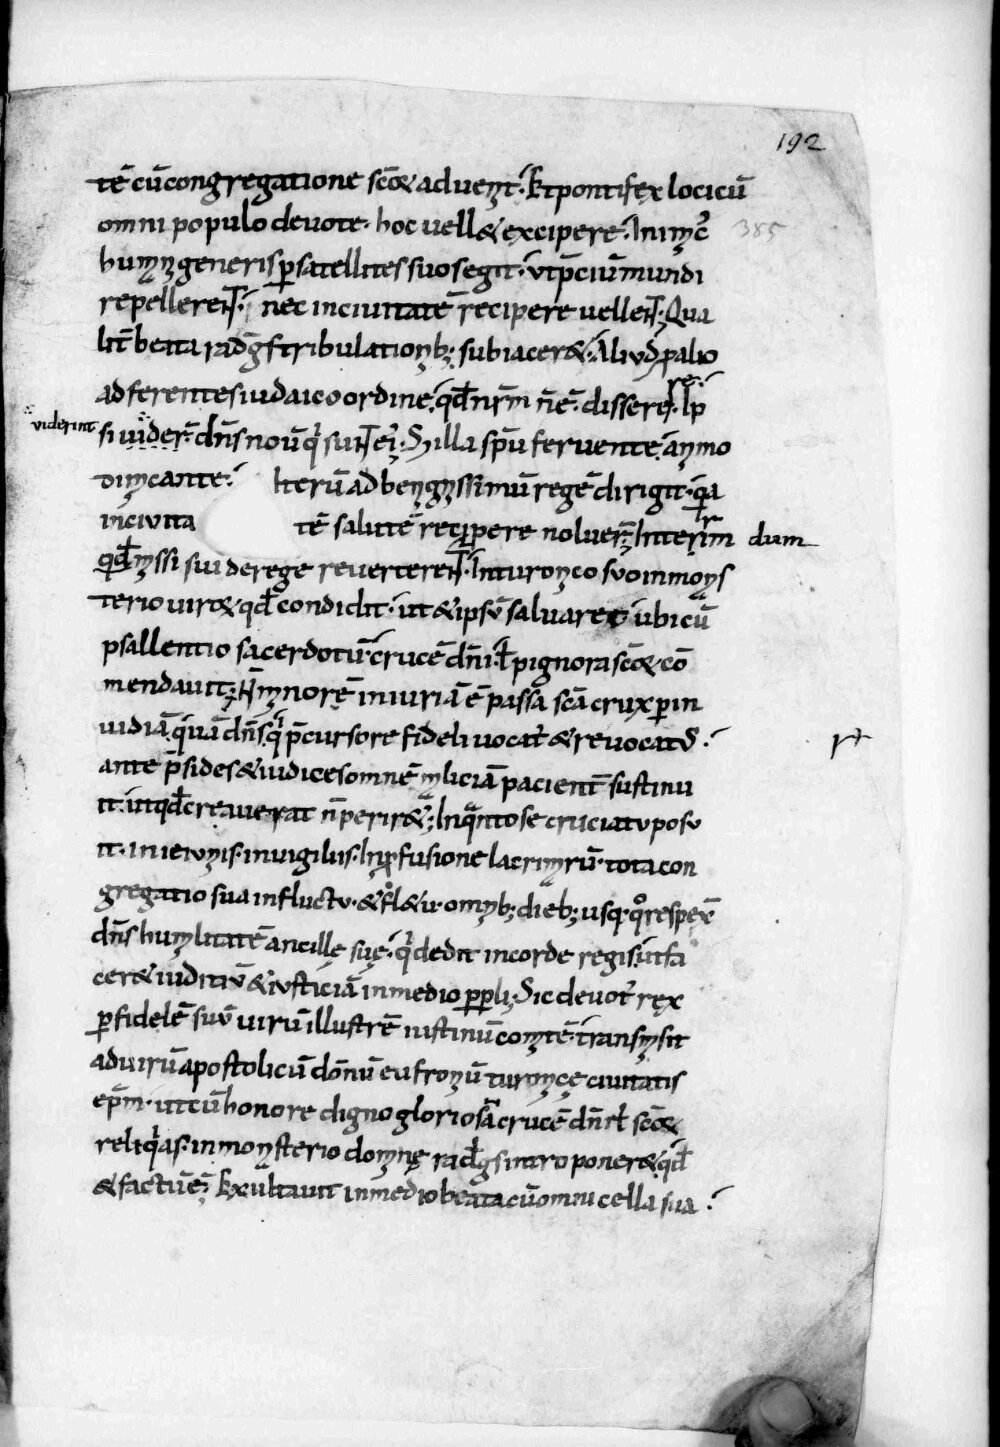 192
tē cū congregatione scāe advenit. Et pontifex loci cū
385
omni populo devote. hoc vell& excipere. Inimic'
humani generis p satellites suos egit. ut p̄ciū mundi
repellerent. nec in civitatē recipere vellent. Qua
lit̄ beata radeḡ tribulationib; subiacer&. Aliud p alio
re.
adferentes iudaico ordine. qđ nr̄m n̄ ē. disserere. Ip
viderint
si vider̄ dn̄s novū qi sunt ei'. S; illa sp̄u fervente. animo
dimicante. Iterū ad benignissimū regē dirigit. qa
in civita tē salutē recipere noluer̄. Interim dum
qđ missi sui de rege reverterent. In turonico suo in monas
terio vir& qđ condidit. ut & ipsū salvaret ubi cū
psallentio sacerdotū. crucē dn̄i. ł pignora scāe cō
mendavit; N̄ minorē iniuriā ē passa scā crux p in
vidiā. quā dn̄s. qi p̄cursore fideli vocat' & revocat'.
ante p̄sides & iudices omnē maliciā pacient̄ sustinu
it. ut qđ creaverat n̄ perir&; In quanto se cruciatu posu
it. in ieiuniis. in vigiliis. In pfusione lacrimarū. tota con
gregatio sua in fluctu. & fl&u. omnib; dieb; usq. quo respex̄
dn̄s humilitatē ancillę suę. qi dedit in corde regis. ut fa
cer& iuditiū & iusticiā in medio populi. Sic devot' rex
p fidelē suū virū illustrē iustinū comitē. transmisit
ad virū apostolicū domnū eufroniū turonicę civitatis
ep̄m. ut cū honore digno gloriosā crucē dn̄i. ł scāe
reliquias. in monasterio domnę radeg. intro poner&. qđ
& factū ē; Exultavit in medio beata cū omni cella sua.